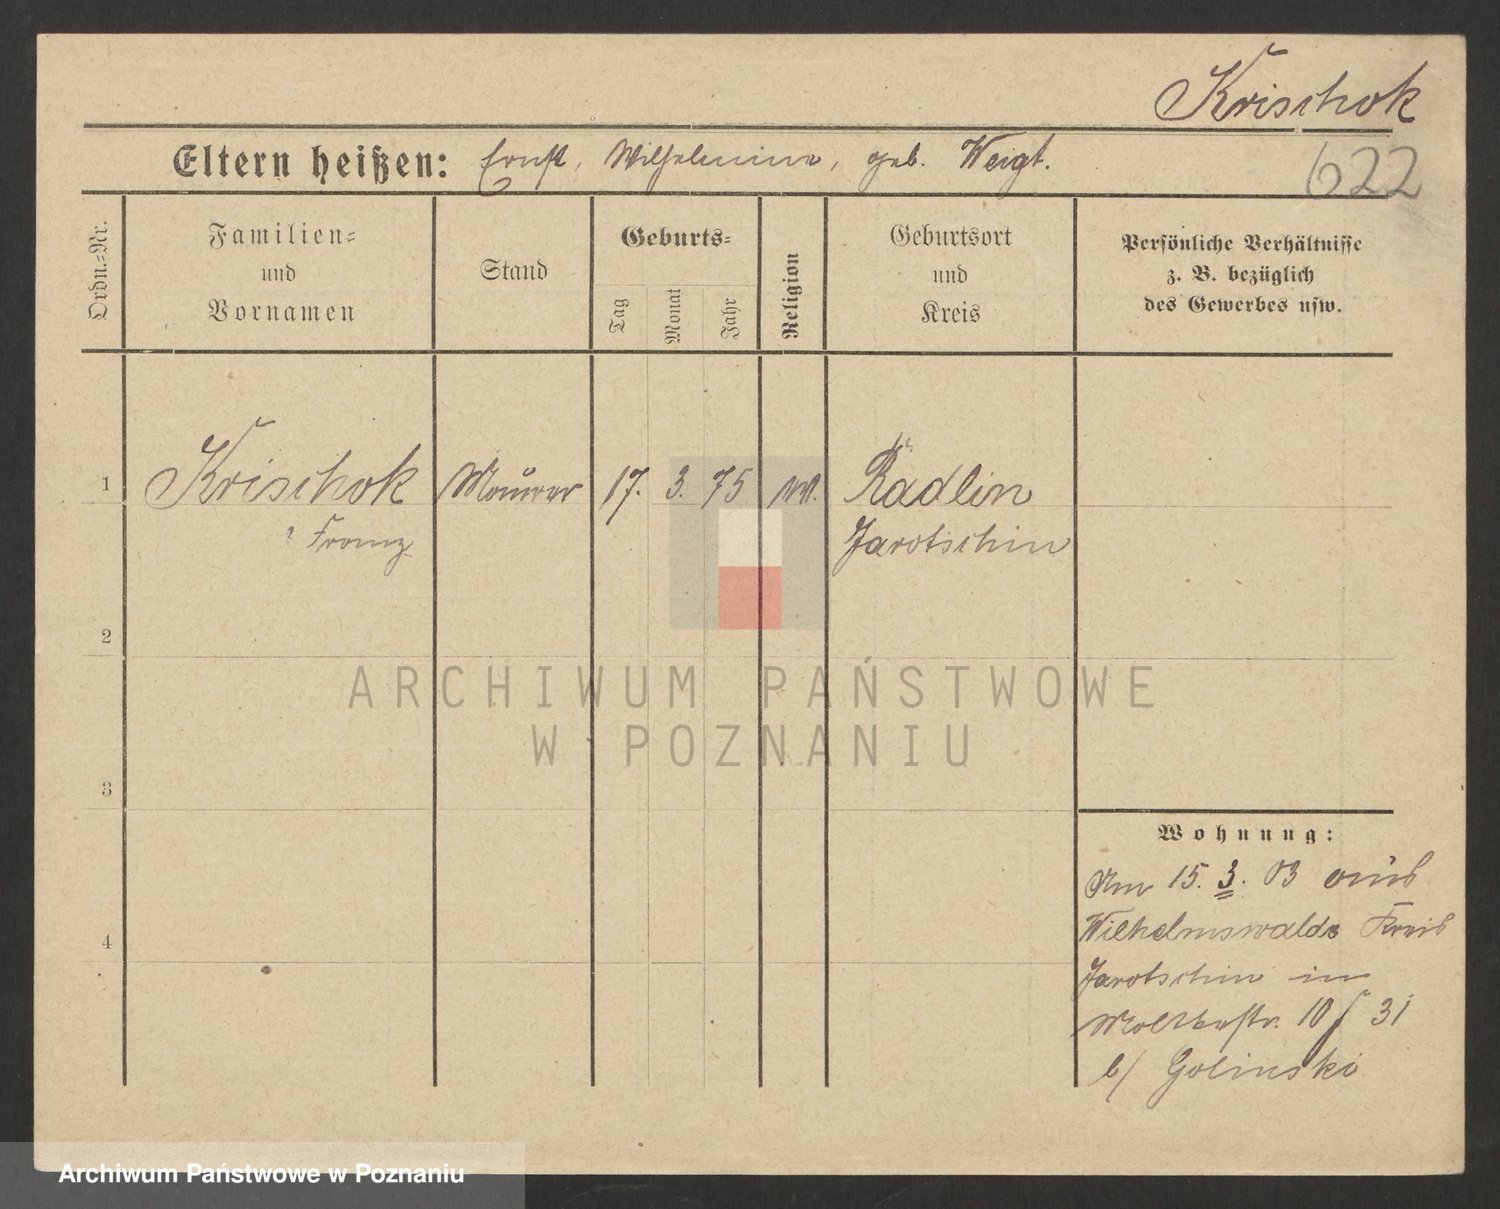 Krischok
Eltern heißen: Ernst, Wilhelmine, geb. Weigt.
622
Ordn.=Nr.
Familien=
und
Vornamen
Stand
Geburts=
Tag
Monat
Jahr
Religion
Geburtsort
und
Kreis
Persönliche Verhältnisse
z. B. bezüglich
des Gewerbes usw.
1 Krischok Maurer 17. 3. 75 Radlin
Franz Jarotschin
2
3
4
Wohnung:
Am 15. 3. 03 aus
Wilhelmswalde Kreis
Jarotschin in
Moltkestr. 10 31
b/ Golinski
ARCHIWUM PAŃSTWOWE
W POZNANIU
Archiwum Państwowe w Poznaniu